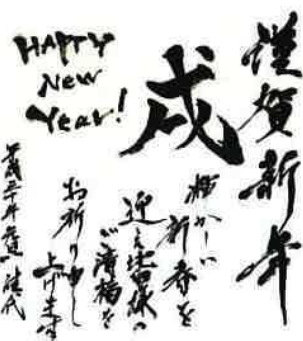 謹賀新年
戌
HAPPY
New
Year!
輝かしい
新春を
迎え皆様の
ご清福を
お祈り申し
上げます
平成三十年